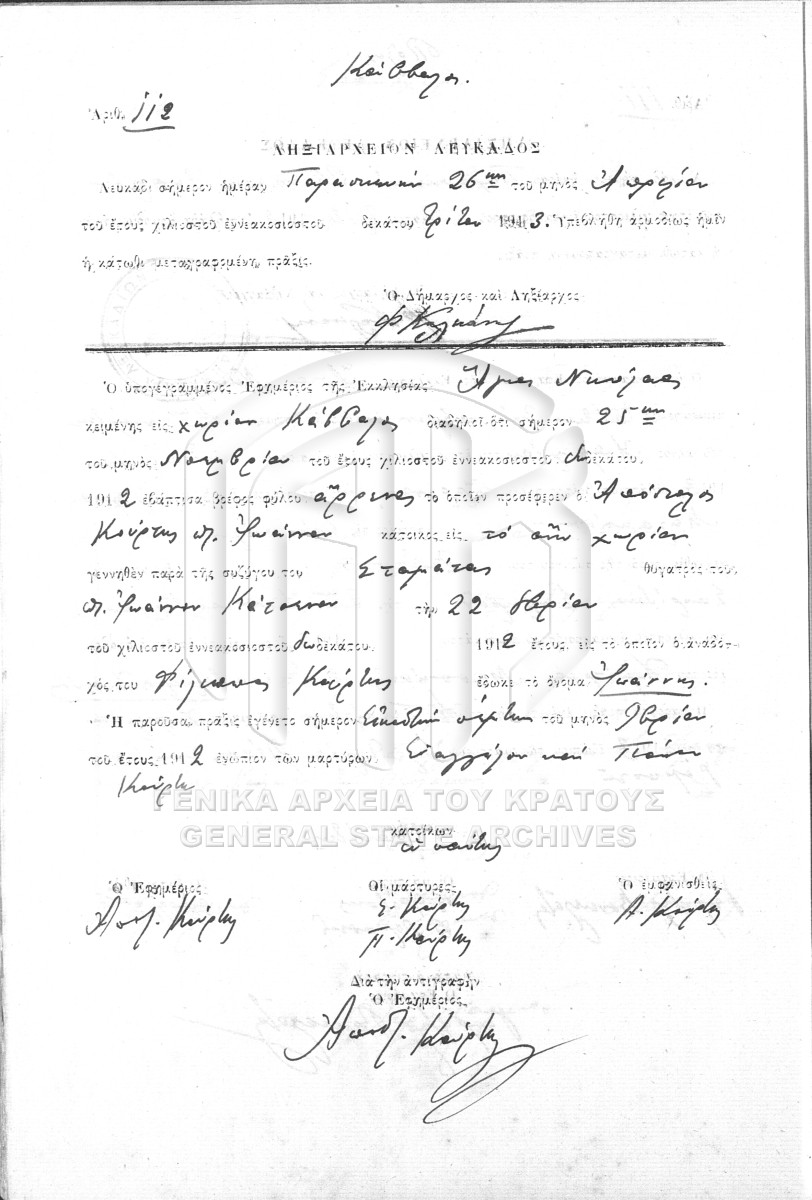 Κάβαλος.
Ἀριθ. 112
ΛΗΞΙΑΡΧΕΙΟΝ ΛΕΥΚΑΔΟΣ
Λευκάδι σήμερον ἡμέραν Παρασκευήν 26ην τοῦ μηνὸς Ἀπριλίου
τοῦ ἔτους χιλιοστοῦ ἐννεακοσιοστοῦ δεκάτου τρίτου 1913. Ὑπεβλήθη ἁρμοδίως ἡμῖν
ἡ κάτωθι μεταγραφομένη πρᾶξις.
Ὁ Δήμαρχος καὶ Ληξίαρχος
Ὁ ὑπογεγραμμένος Ἐφημέριος τῆς Ἐκκλησίας Ἅγιος Νικόλαος
κειμένης εἰς χωρίον Κάββαλος διαδηλοῖ ὅτι σήμερον 25ην
τοῦ μηνὸς Νοεμβρίου τοῦ ἔτους χιλιοστοῦ ἐννεακοσιοστοῦ δωδεκάτου
1912 ἐβάπτισα βρέφος φύλου ἄρρενος τὸ ὁποῖον προσέφερεν ὁ Ἀπόστολος
Κούρτης π. Ἰωάννου κάτοικος εἰς τὸ αὐτὸ χωρίον
γεννηθὲν παρὰ τῆς συζύγου του Σταμάτας θυγατρὸς τοῦ
π. Ἰωάννου Κάτσενου τὴν 22 9βρίου
τοῦ χιλιοστοῦ ἐννεακοσιοστοῦ δωδεκάτου 1912 ἔτους, εἰς τὸ ὁποῖον ὁ ἀνάδο-
χός του Φίλιππος Κούρτης ἔδωκε τὸ ὄνομα Ἰωάννης.
Ἡ παροῦσα πρᾶξις ἐγένετο σήμερον Εἰκοστήν πέμπτην τοῦ μηνὸς 9βρίου
τοῦ ἔτους 1912 ἐνώπιον τῶν μαρτύρων Εὐαγγέλου καὶ Πάνου
Κούρτη
ΓΕΝΙΚΑ ΑΡΧΕΙΑ ΤΟΥ ΚΡΑΤΟΥΣ
GENERAL STATE ARCHIVES
κατοίκων
Ὁ Ἐφημέριος Οἱ μάρτυρες Ὁ ἐμφανισθείς
Ἀποστ. Κούρτης Ε. Κούρτης Α. Κούρτης
Π. Κούρτης
Διὰ τὴν ἀντιγραφὴν
Ὁ Ἐφημέριος
Ἀποστ. Κούρτης